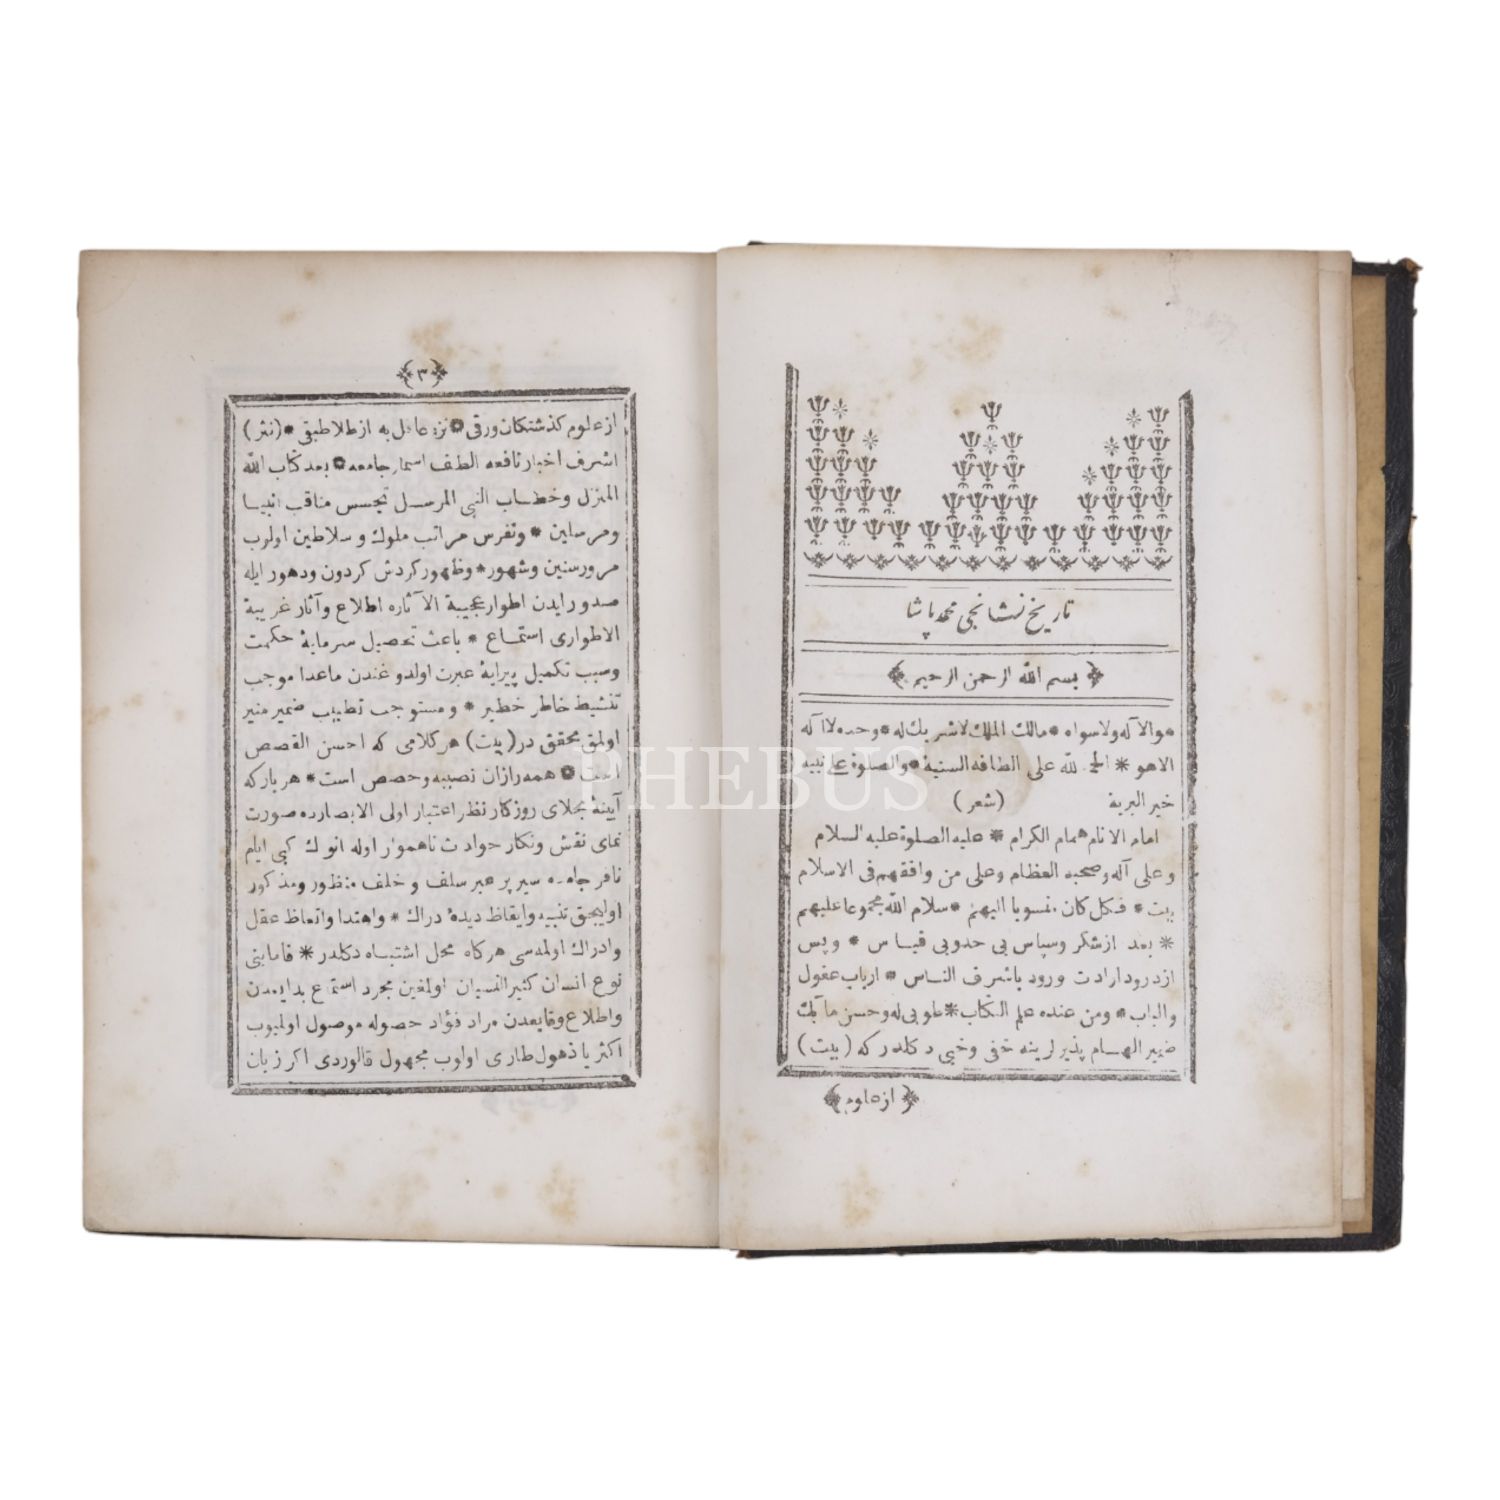 تاریخ نشانجی محمد پاشا
بسم الله الرحمن الرحیم
هو الاله ولا سواه * مالك الملك لا شریك له * وحده لا اله
الا هو * الحمد لله علی الطافه السنیة * والصلوة علی نبیه
خیر البریة (شعر)
امام الانام همام الكرام * علیه الصلوة علیه السلام
وعلی آله وصحبه العظام وعلی من وافقهم فی الاسلام
بیت * فكل كان منسوبا الیهم * سلام الله مجموعا علیهم
* بعد از شكر وسپاس بی حدوبی قیاس * وپس
از درود ارادت ورود باشرف الناس * ارباب عقول
والباب * ومن عنده علم الكتاب * طوبی له وحسن مآبك
ضمیر الهام پذیر لرینه خفی وخبی دكلدر كه (بیت)
از علوم
٣
از علوم كذشتكان ورقی * نزد عاقل به از طلا طبقی * (نثر)
اشرف اخبار نافعه الطف اسمار جامعه * بعد كتاب الله
المنزل وخطاب النبی المرسل تجسس مناقب انبیا
ومرسلین * وتفرس مراتب ملوك وسلاطین اولوب
مرور سنین وشهور * وظهور كردش كردون ودهور ایله
صدور ایدن اطوار عجیبة الآثاره اطلاع وآثار غریبة
الاطواری استماع * باعث تحصیل سرمایۀ حكمت
وسبب تكمیل پیرایۀ عبرت اولدوغندن ماعدا موجب
تنشیط خاطر خطیر * ومستوجب تطییب ضمیر منیر
اولمق محققدر (بیت) هر كلامی كه احسن القصص
است * همه را زان نصیبه وحصص است * هر بار كه
آیینۀ مجلای روزكار نظر اعتبار اولی الابصارده صورت
نمای نقش ونكار حوادث ناهموار اوله انوك كبی ایام
نافرجامده سیر پر عبر سلف وخلف منظور ومذكور
اولیجق تنبیه وایقاظ دیدۀ دراك * واهتدا واتعاظ عقل
وادراك اولمه سی هركاه محل اشتباه دكلدر * فاما بنی
نوع انسان كثیر النسیان اولمغین مجرد استماع بدایعدن
واطلاع وقایعدن مراد فؤاد حصوله موصول اولمیوب
اكثر یا ذهول طاری اولوب مجهول قالوردی اكر زبان
PHEBUS